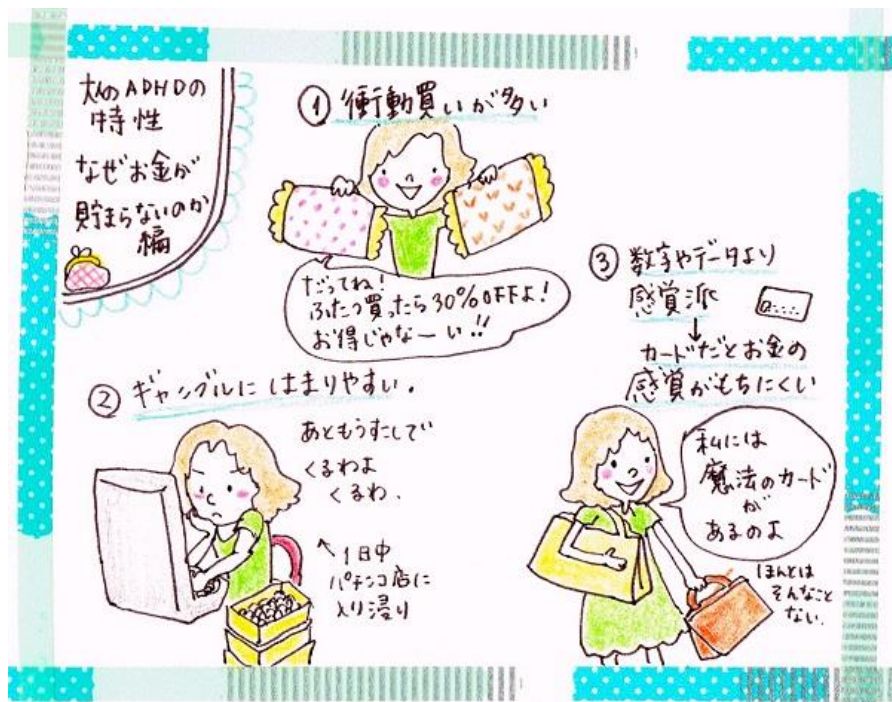 大人のADHDの
特性
なぜお金が
貯まらないのか
編
① 衝動買いが多い
だってね!
ふたつ買ったら30%OFFよ!
お得じゃなーい!!
② ギャンブルにはまりやすい.
あともうすこしで
くるわよ
くるわ.
↖1日中
パチンコ店に
入り浸り
③ 数字やデータより
感覚派
↓
カードだとお金の
感覚がもちにくい
私には
魔法のカード
が
あるのよ
ほんとは
そんなこと
ない.